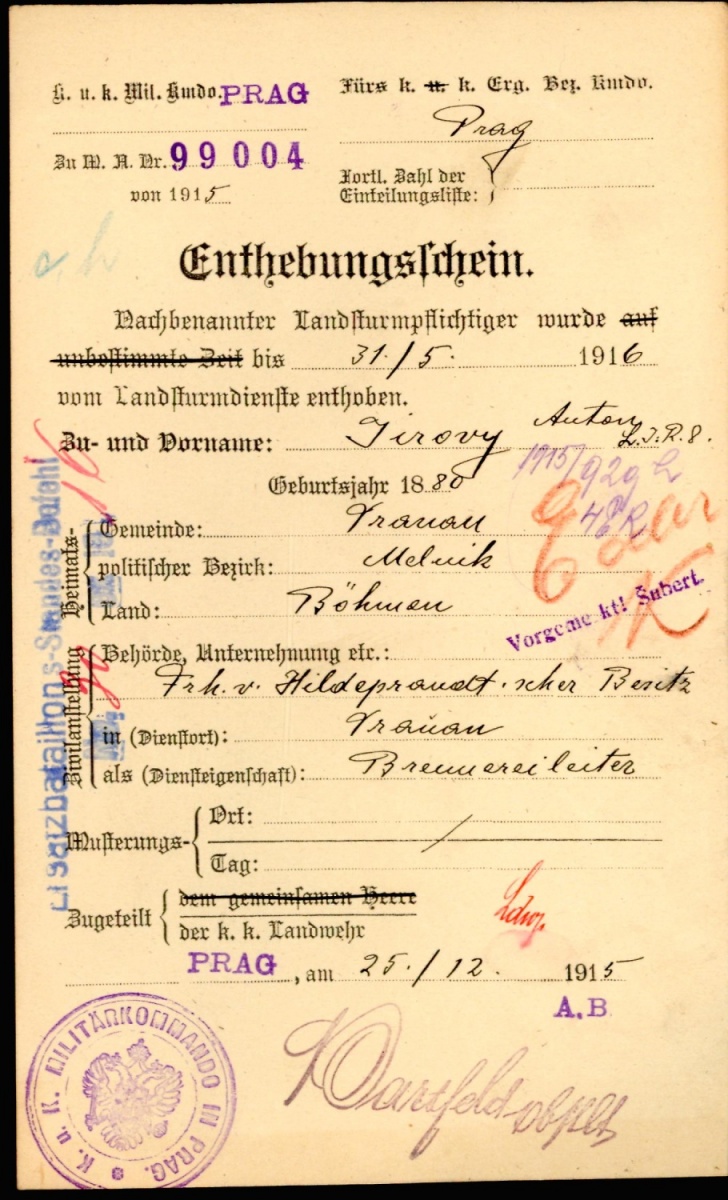 K. u. k. Mil. Kmdo. PRAG
Fürs k. u. k. Erg. Bez. Kmdo.
Prag
Zu M. A. Nr. 99004
von 1915
Fortl. Zahl der
Einteilungsliste:
Enthebungsschein.
Nachbenannter Landsturmpflichtiger wurde auf
unbestimmte Zeit bis 31./5. 1916
vom Landsturmdienste enthoben.
Zu- und Vorname: Jirovy Anton
L.I.R.8.
Geburtsjahr 1880
1915/929 L
Heimats-
Gemeinde: Vranan
politischer Bezirk: Melnik
Land: Böhmen
K
Vorgemerkt! Šubert.
Zivilanstellung
Behörde, Unternehmung etc.:
Frh. v. Hildeprandt'scher Besitz
in (Dienstort): Vranan
als (Diensteigenschaft): Brennereileiter
Ersatzbataillons-Standes-Befehl
Musterungs-
Ort:
Tag:
Zugeteilt
dem gemeinsamen Heere
der k. k. Landwehr
PRAG, am 25./12. 1915
A.B
K. u. K. MILITÄRKOMMANDO IN PRAG.